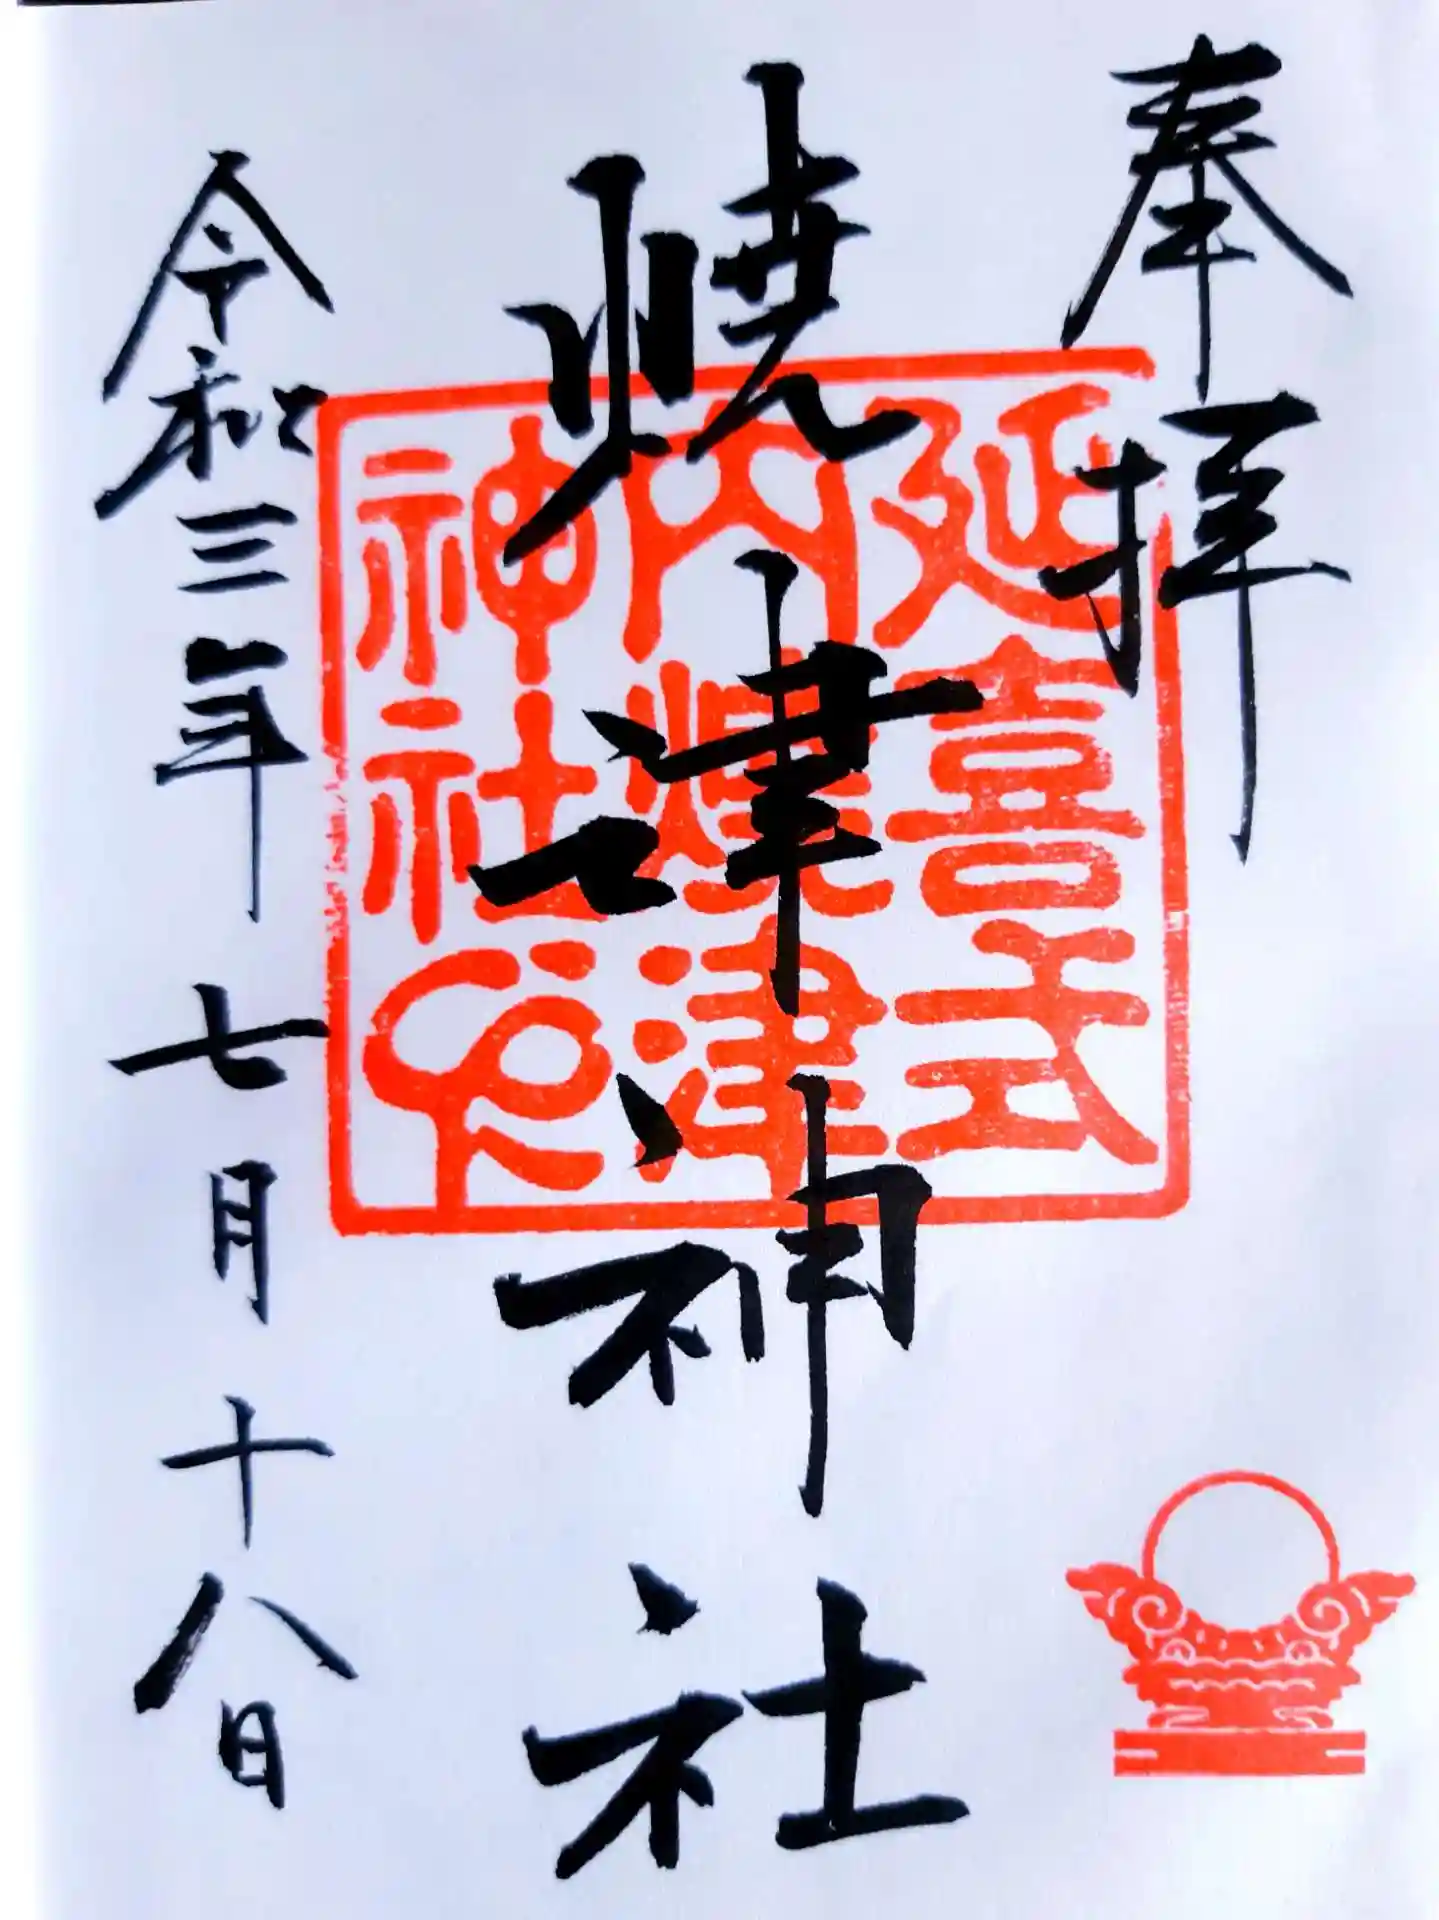 奉拝
延喜式
内焼津
神社之印
焼津神社
令和三年七月十八日